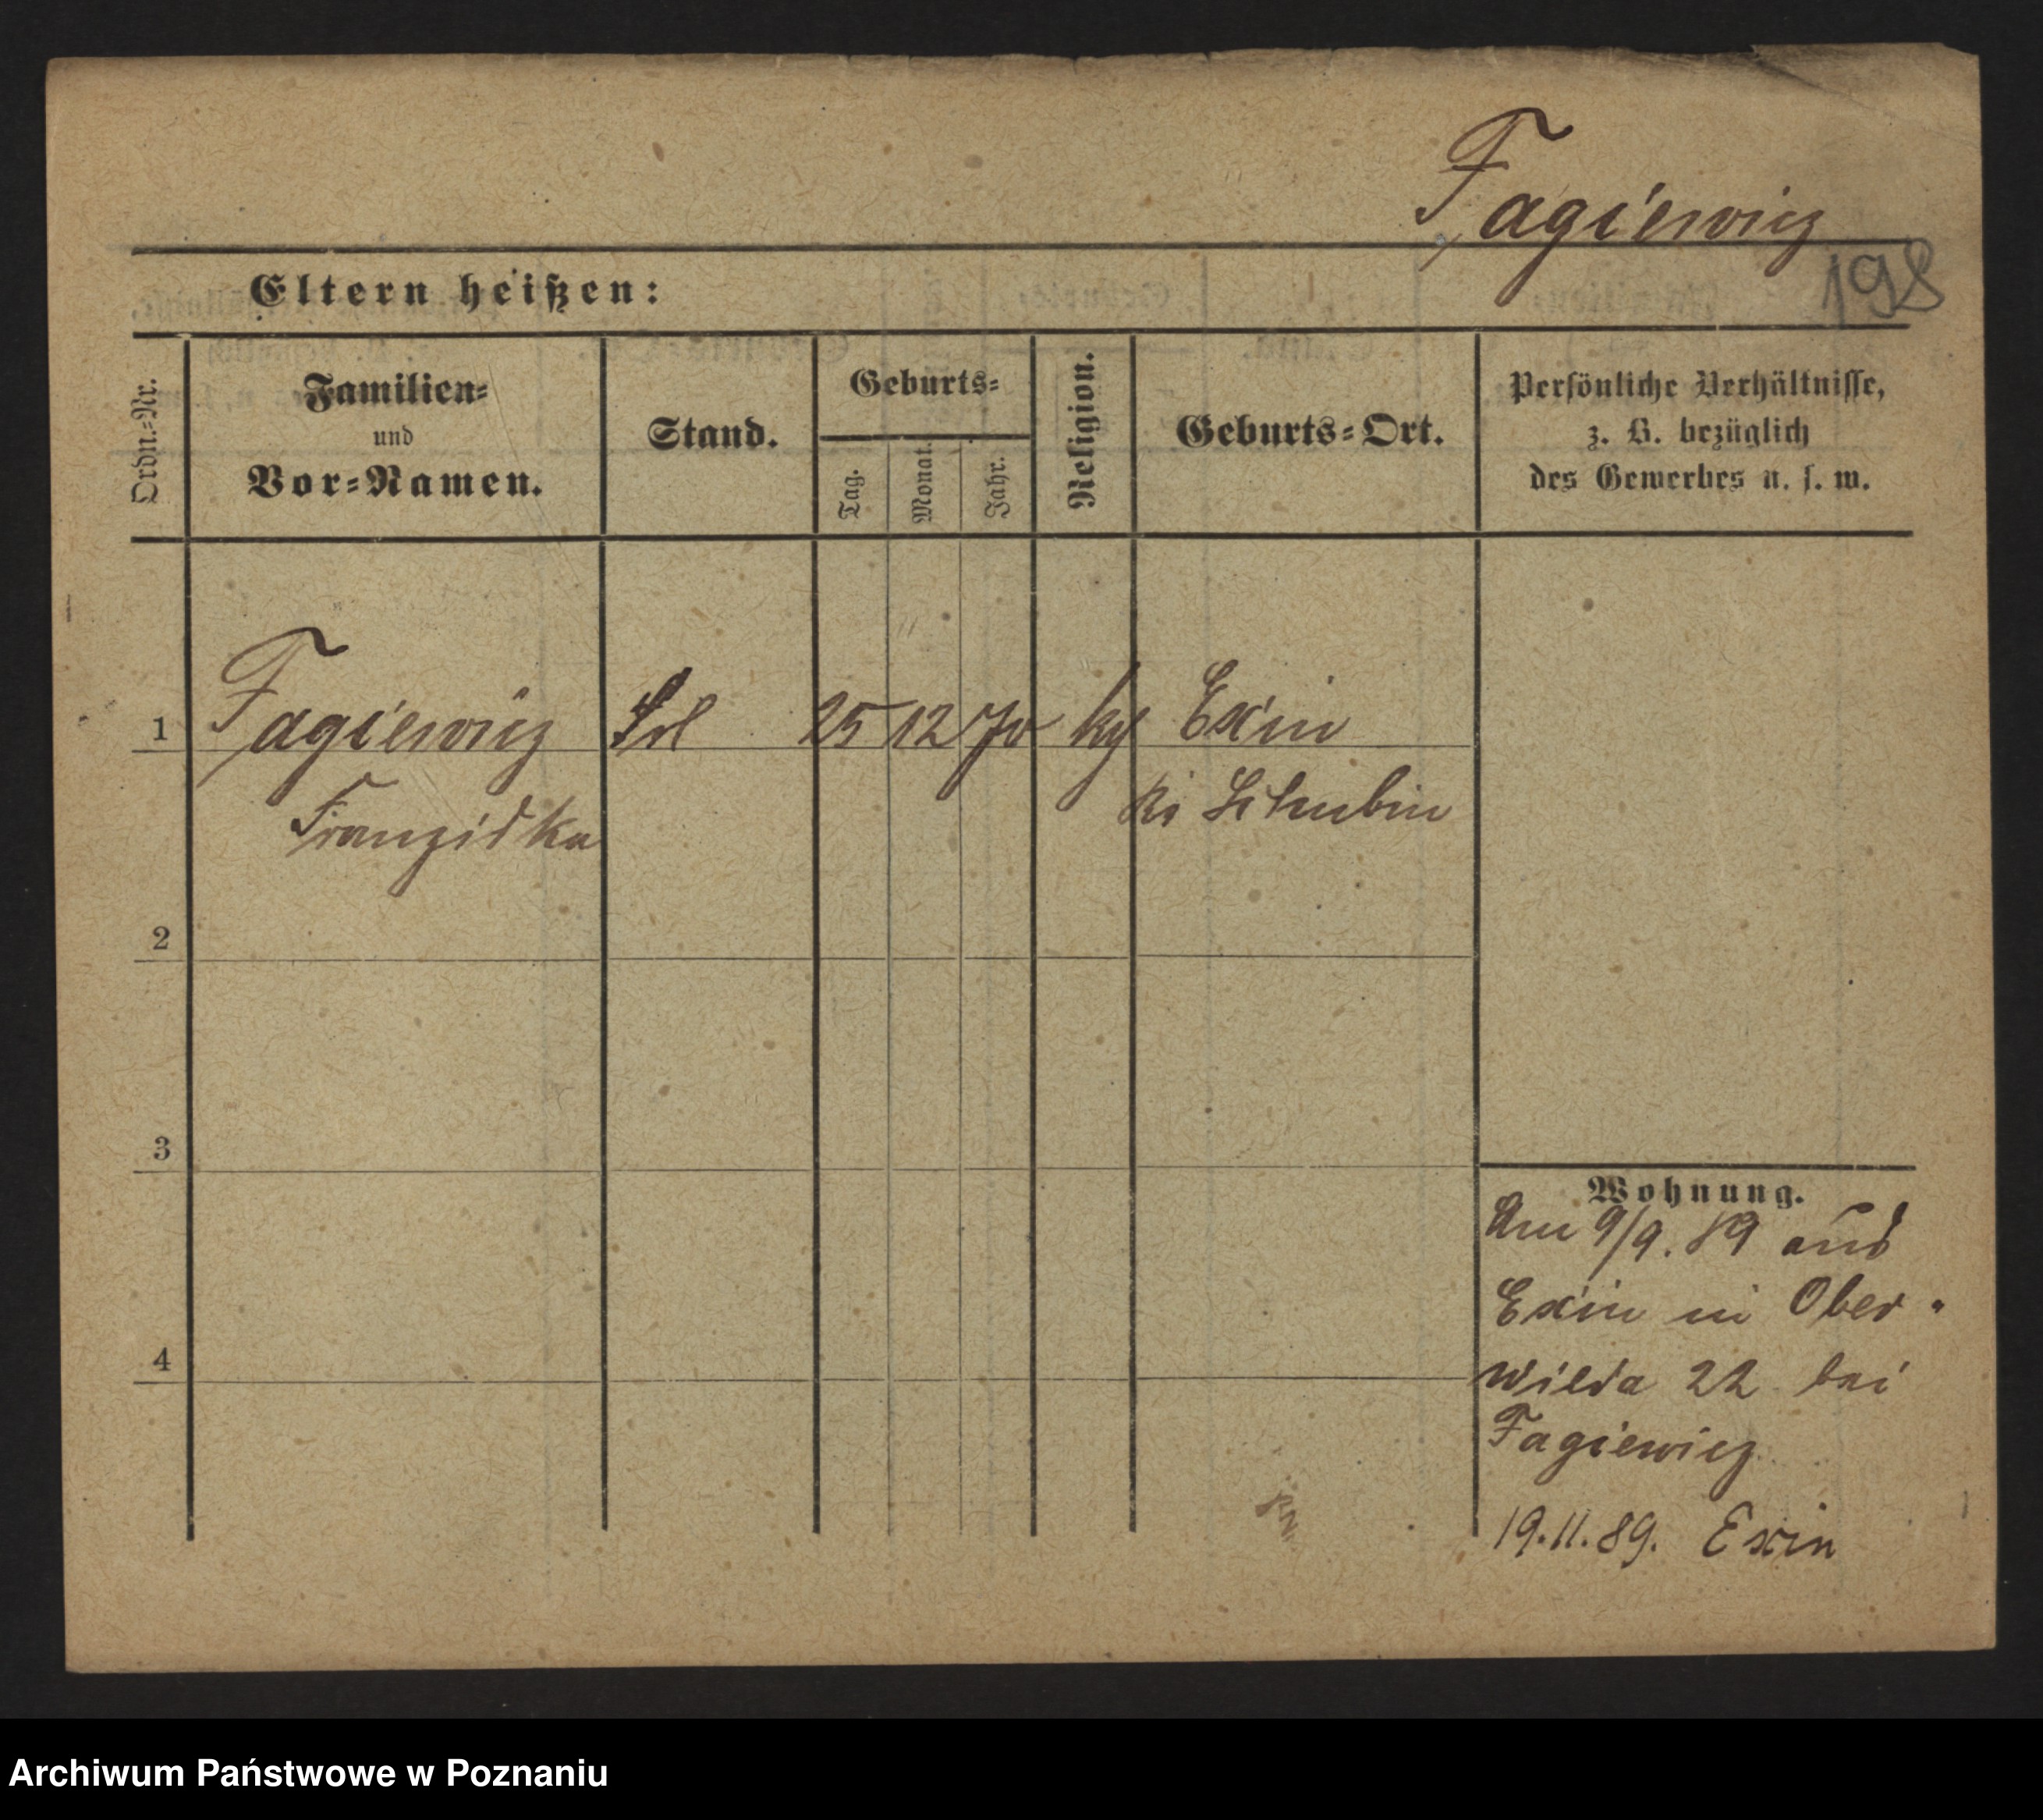 Fagiewicz
198
Eltern heißen:
Ordn.-Nr.
Familien-
und
Vor-Namen.
Stand.
Geburts-
Tag.
Monat.
Jahr.
Religion.
Geburts-Ort.
Persönliche Verhältnisse,
z. B. bezüglich
des Gewerbes u. s. w.
1
Fagiewicz
25 12 70
Exin
Franziska
Schubin
2
3
4
Wohnung.
Am 9/9. 89 aus
Exin in Ober-
wilda 22 bei
Fagiewicz
19.11.89. Exin
Archiwum Państwowe w Poznaniu